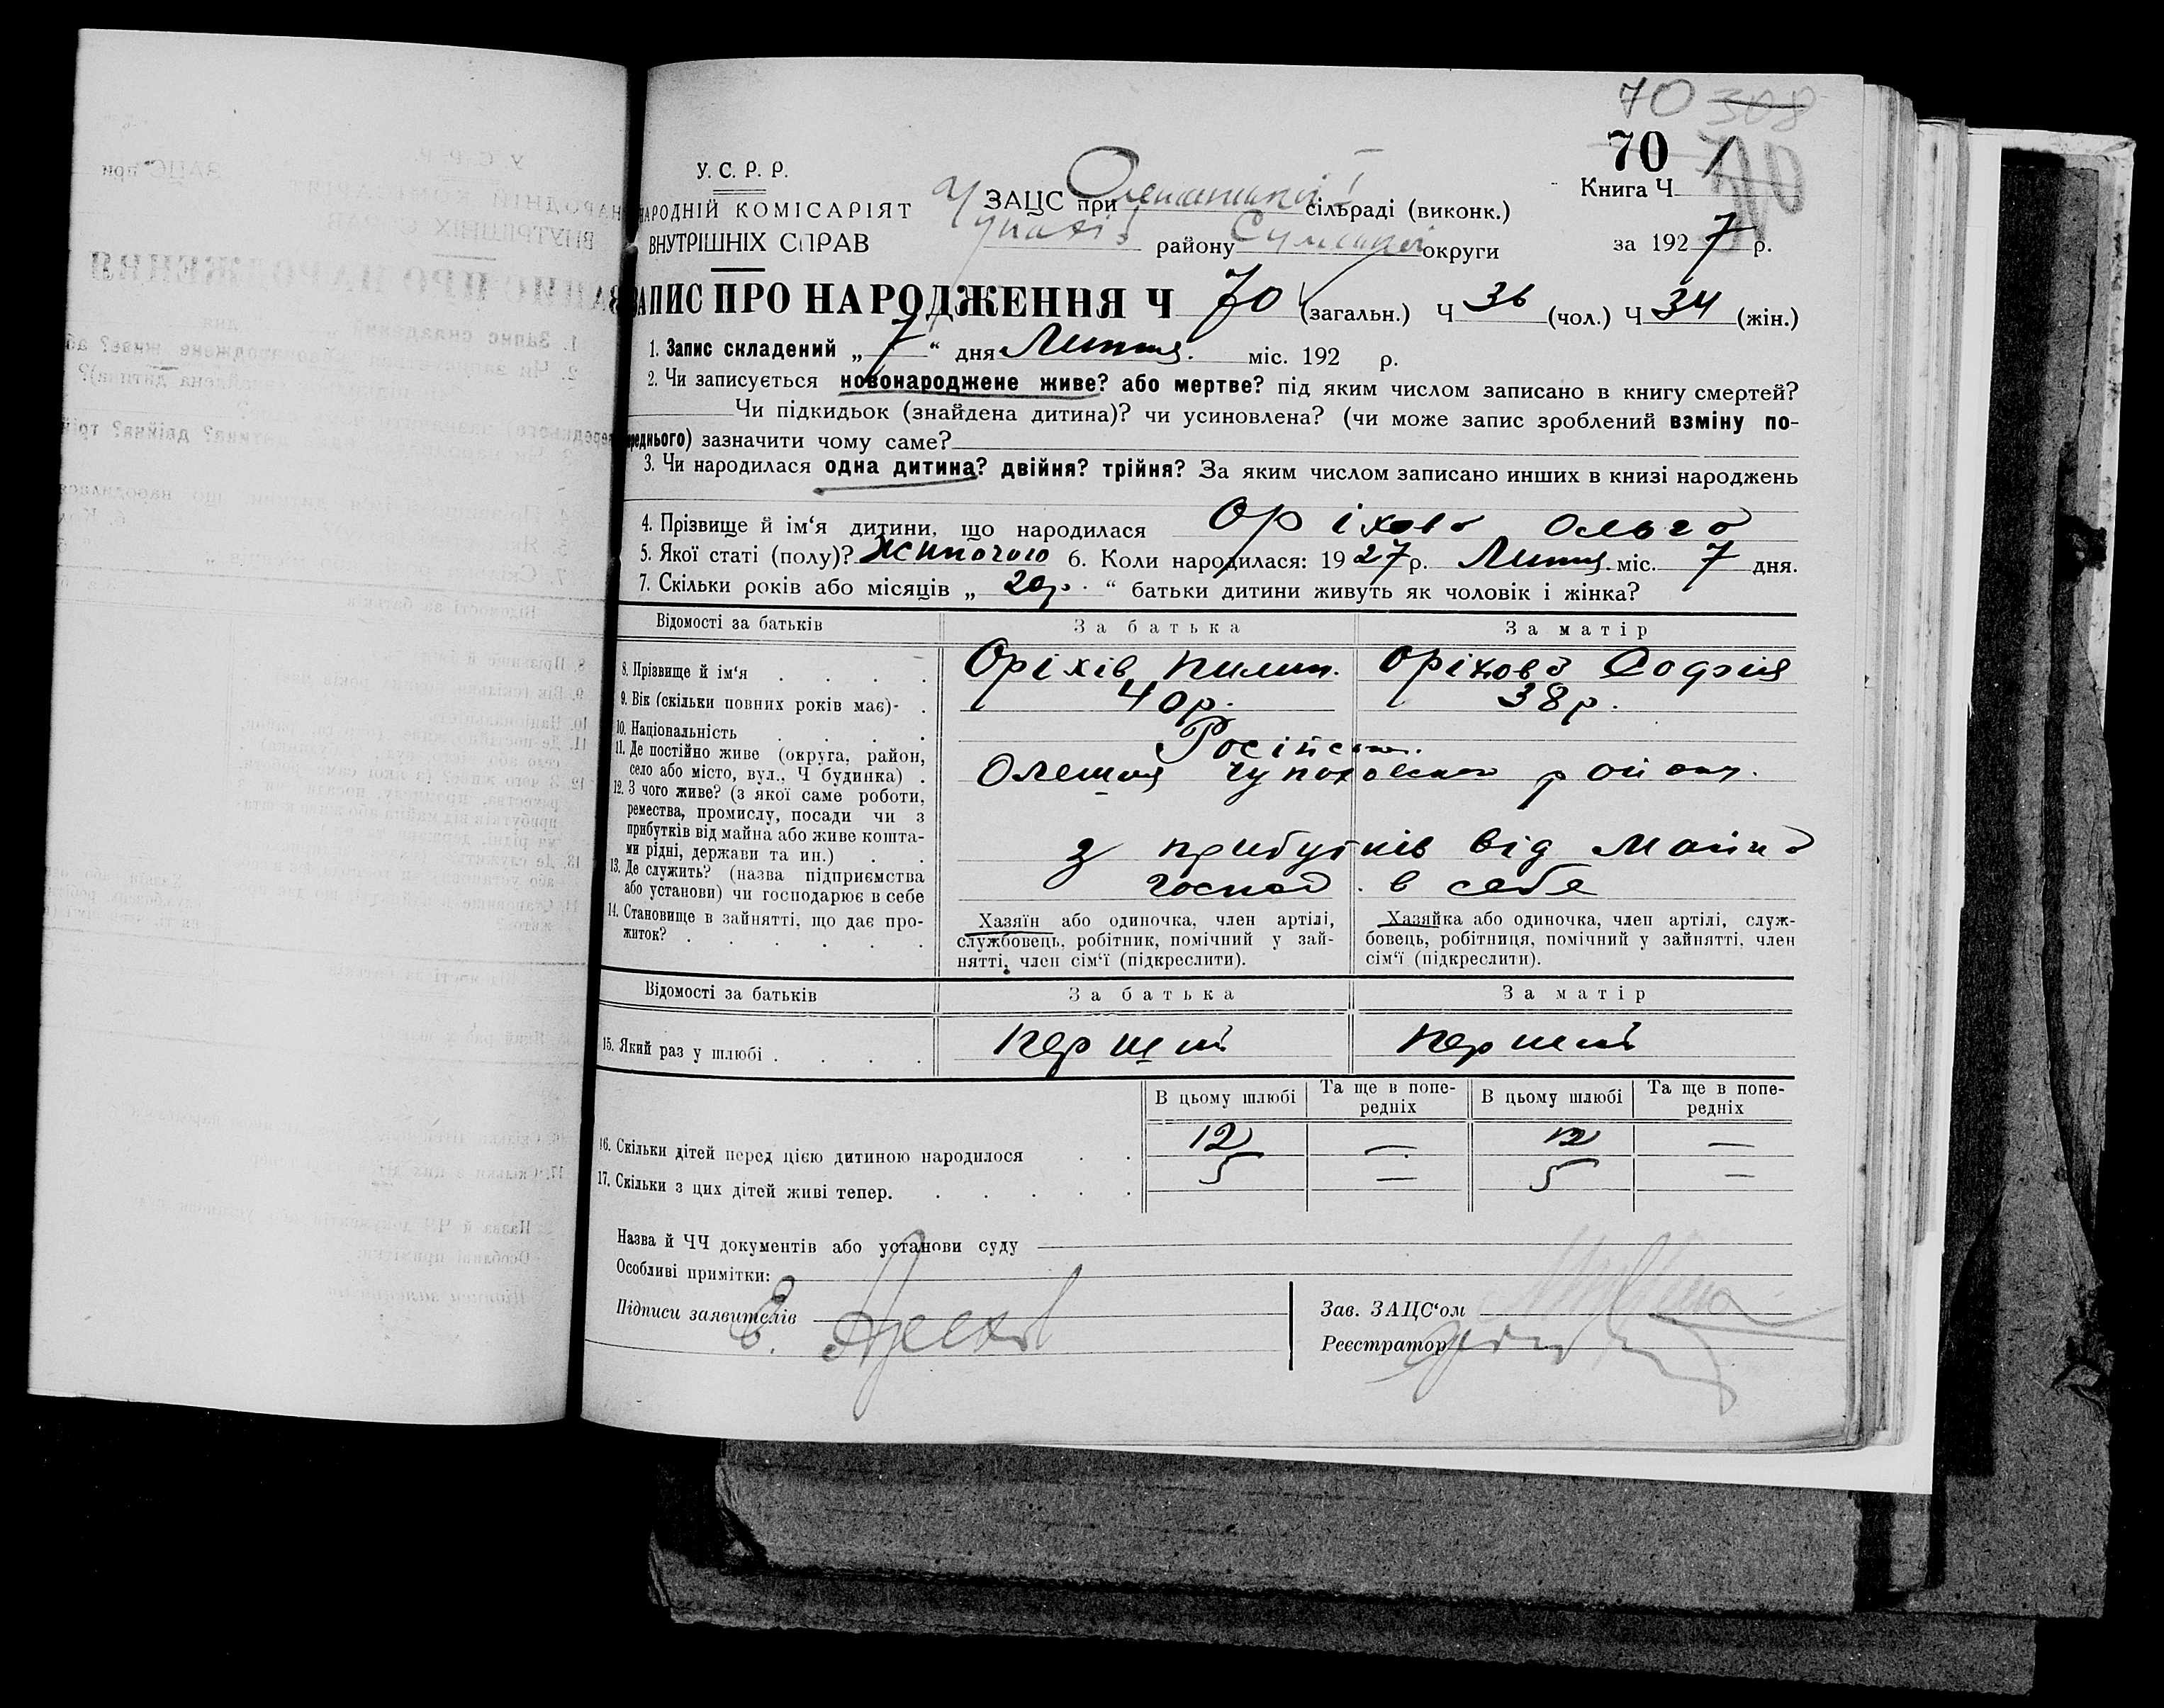 70 308
70
У. С. Р. Р.
Книга Ч 1
НАРОДНІЙ КОМІСАРІЯТ
ВНУТРІШНІХ СПРАВ
ЗАЦС при Олешанській сільраді (виконк.)
Чупахів. району Сумської округи
за 1927 р.
ЗАПИС ПРО НАРОДЖЕННЯ Ч 70 (загальн.) Ч 36 (чол.) Ч 34 (жін.)
1. Запис складений „ 7 “ дня Липня. міс. 192 р.
2. Чи записується новонароджене живе? або мертве? під яким числом записано в книгу смертей?
Чи підкидьок (знайдена дитина)? чи усиновлена? (чи може запис зроблений взміну по-
реднього) зазначити чому саме?
3. Чи народилася одна дитина? двійня? трійня? За яким числом записано инших в книзі народжень
4. Прізвище й ім‘я дитини, що народилася Оріхова Ольга
5. Якої статі (полу)? Жиночого 6. Коли народилася: 1927 р. Липня. міс. 7 дня.
7. Скільки років або місяців „ 20р. “ батьки дитини живуть як чоловік і жінка?
Відомості за батьків За батька За матір
8. Прізвище й ім‘я . . . . Оріхів Пилип. Оріхова Софія
9. Вік (скільки повних років має)- . 40р. 38р.
10. Національність . . . . Російськ.
11. Де постійно живе (округа, район,
село або місто, вул., Ч будинка) . Олешня Чупаховского району.
12. З чого живе? (з якої саме роботи,
ремества, промислу, посади чи з
прибутків від майна або живе кошта-
ми рідні, держави та ин.) . . з прибутків від майна
13. Де служить? (назва підприємства
або установи) чи господарює в себе господ. в себе
14. Становище в зайнятті, що дає про-
житок? . . . . . .
Хазяїн або одиночка, член артілі,
службовець, робітник, помічний у зай-
нятті, член сім‘ї (підкреслити).
Хазяйка або одиночка, член артілі, служ-
бовець, робітниця, помічний у зайнятті, член
сім‘ї (підкреслити).
Відомості за батьків За батька За матір
15. Який раз у шлюбі . . . . перший перший
В цьому шлюбі Та ще в попе-редніх В цьому шлюбі Та ще в попе-редніх
16. Скільки дітей перед цією дитиною народилося . . 12 — 12 —
17. Скільки з цих дітей живі тепер. . . . . . 5 — 5 —
Назва й ЧЧ документів або установи суду
Особливі примітки:
Підписи заявителів
Зав. ЗАЦС‘ом
Реєстратор